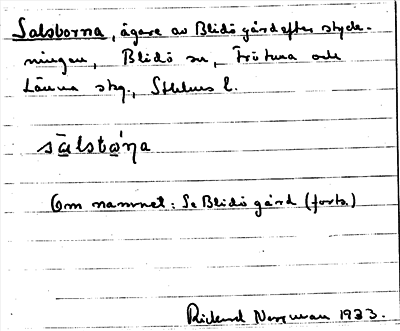 Salsborna, ägare av Blidö gård efter styck-
ningen, Blidö sn, Frötuna och
Länna skg., Sthlms l.
sa̲lsbo̲'ṇa
Om namnet: Se Blidö gård (forts.)
Rickard Norrman 1933.